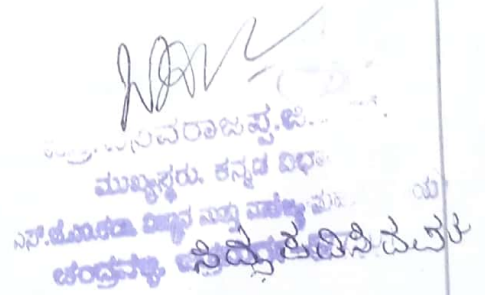 ಬಸವರಾಜಪ್ಪ.ಜಿ.
ಮುಖ್ಯಸ್ಥರು. ಕನ್ನಡ ವಿಭಾ
ಎಸ್.ಜೆ.ಎಂ.ಕಲಾ, ವಿಜ್ಞಾನ ಮತ್ತು ವಾಣಿಜ್ಯ ಮಹಾ ಯ
ಚಂದ್ರವಳ್ಳಿ,
ಸಿದ್ಧಪಡಿಸಿದವರು